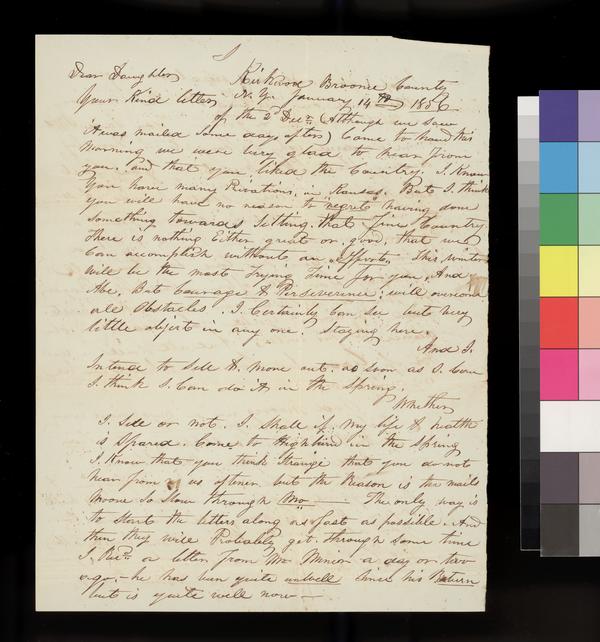 Dear Daughter Kirkwood Broome County
Your Kind letter N. Y. January 14th 1856
of the 2d Decr (Although we saw
it was mailed some days after) Came to hand this
morning we were very glad to hear from
you. and that you liked the Country. I Know
You have many Privations, in Kansas. But I think
you will have no reason to "regret" having done
something towards Settling that fine Country
There is nothing Either great or good, that we
Can accomplish without an "Effort". This winter
will be the most trying time for you And
Abe, But Courage & Perseverence will overcome
all Obstacles. I Certainly Can see but very
little object in any one Staying here.
And I.
Intend to Sell & move out. as soon as I Can
I think I Can do it in the Spring.
Whether
I Sell or not. I Shall if my life & health
is Spared. Come to in the Spring
I Know that you think Strange that you do not
hear from us oftener but the Reason is the mails
move So Slow through Mo — The only way is
to Start the letters along as fast as possible. And
then they will Probably get through some time
I Recd a letter from Mr a day or two
ago, — he has been quite unwell Since his Return
but is quite well now —